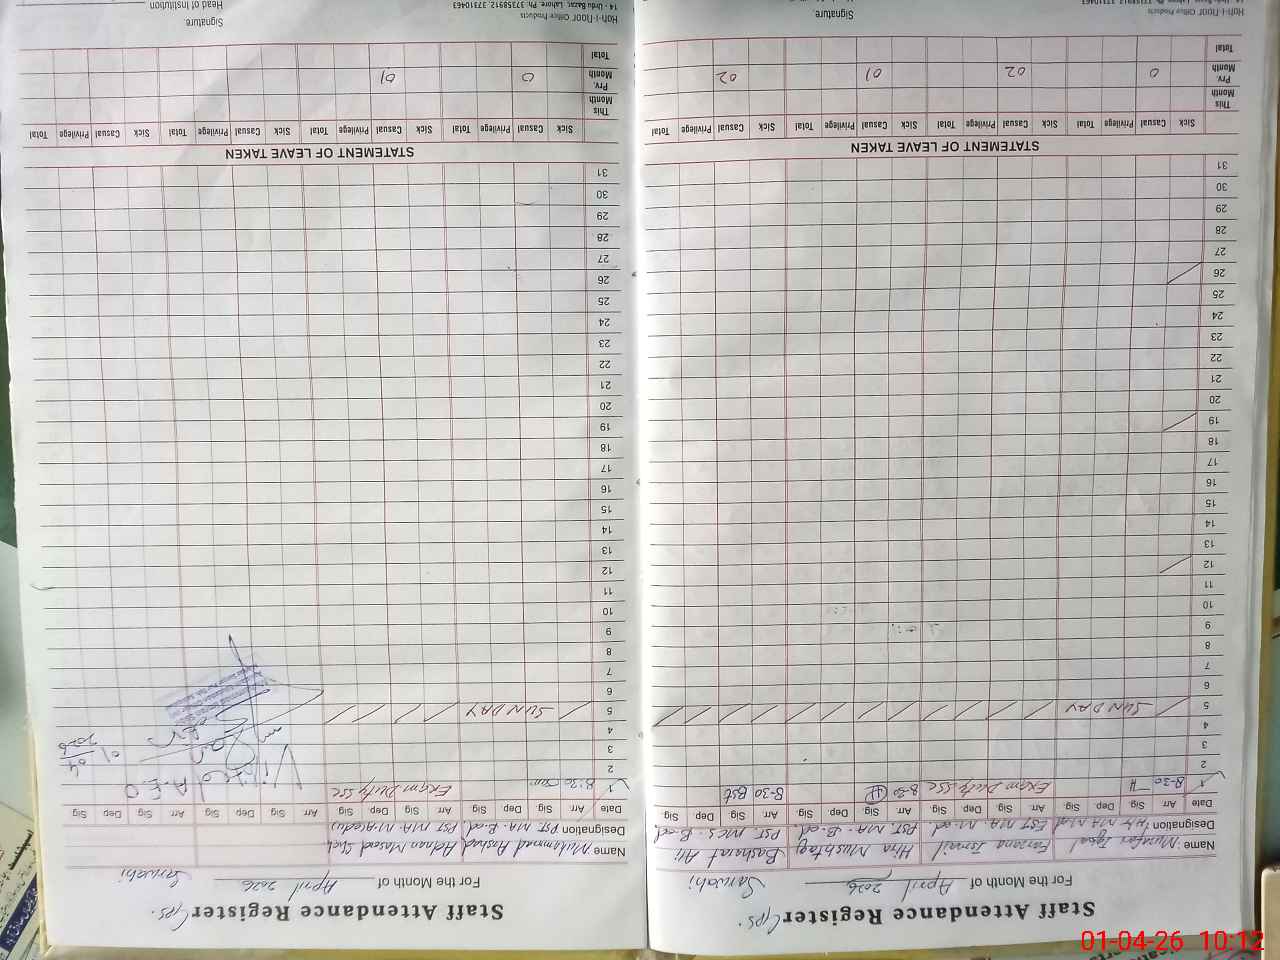 Staff Attendance Register GPS.
For the Month of April 2026 Sarwahi
Name Muzafar Iqbal Farzana Ismail Hina Mushtaq Basharat Ali
Designation EST MA M-ed PST, MA-B-ed. PST MCS-B-ed
Date Arr Sig Dep Sig Arr Sig Dep Sig Arr Sig Dep Sig Arr Sig Dep Sig
1 8-30 Exam Duty SSC 8-30 8-30 Bst
2
3
4
5 SUNDAY
6
7
8
9
10
11
12
13
14
15
16
17
18
19
20
21
22
23
24
25
26
27
28
29
30
31
STATEMENT OF LEAVE TAKEN
Sick Casual Privilege Total Sick Casual Privilege Total Sick Casual Privilege Total Sick Casual Privilege Total
This Month
Prv. Month 0 02 01 02
Total
Signature
Staff Attendance Register GPS.
For the Month of April 2026 Sarwahi
Name Muhammad Arshad Adnan Masood
Designation PST. MA-B-ed. PST MA
Date Arr Sig Dep Sig Arr Sig Dep Sig Arr Sig Dep Sig Arr Sig Dep Sig
1 8:30 Exam Duty SSC
Visited A.E.O
01/04 2026
2
3
4
5 SUNDAY
6
7
8
9
10
11
12
13
14
15
16
17
18
19
20
21
22
23
24
25
26
27
28
29
30
31
STATEMENT OF LEAVE TAKEN
Sick Casual Privilege Total Sick Casual Privilege Total Sick Casual Privilege Total Sick Casual Privilege Total
This Month
Prv. Month 0 01
Total
Signature
Head of Institution
01-04-26 10:12